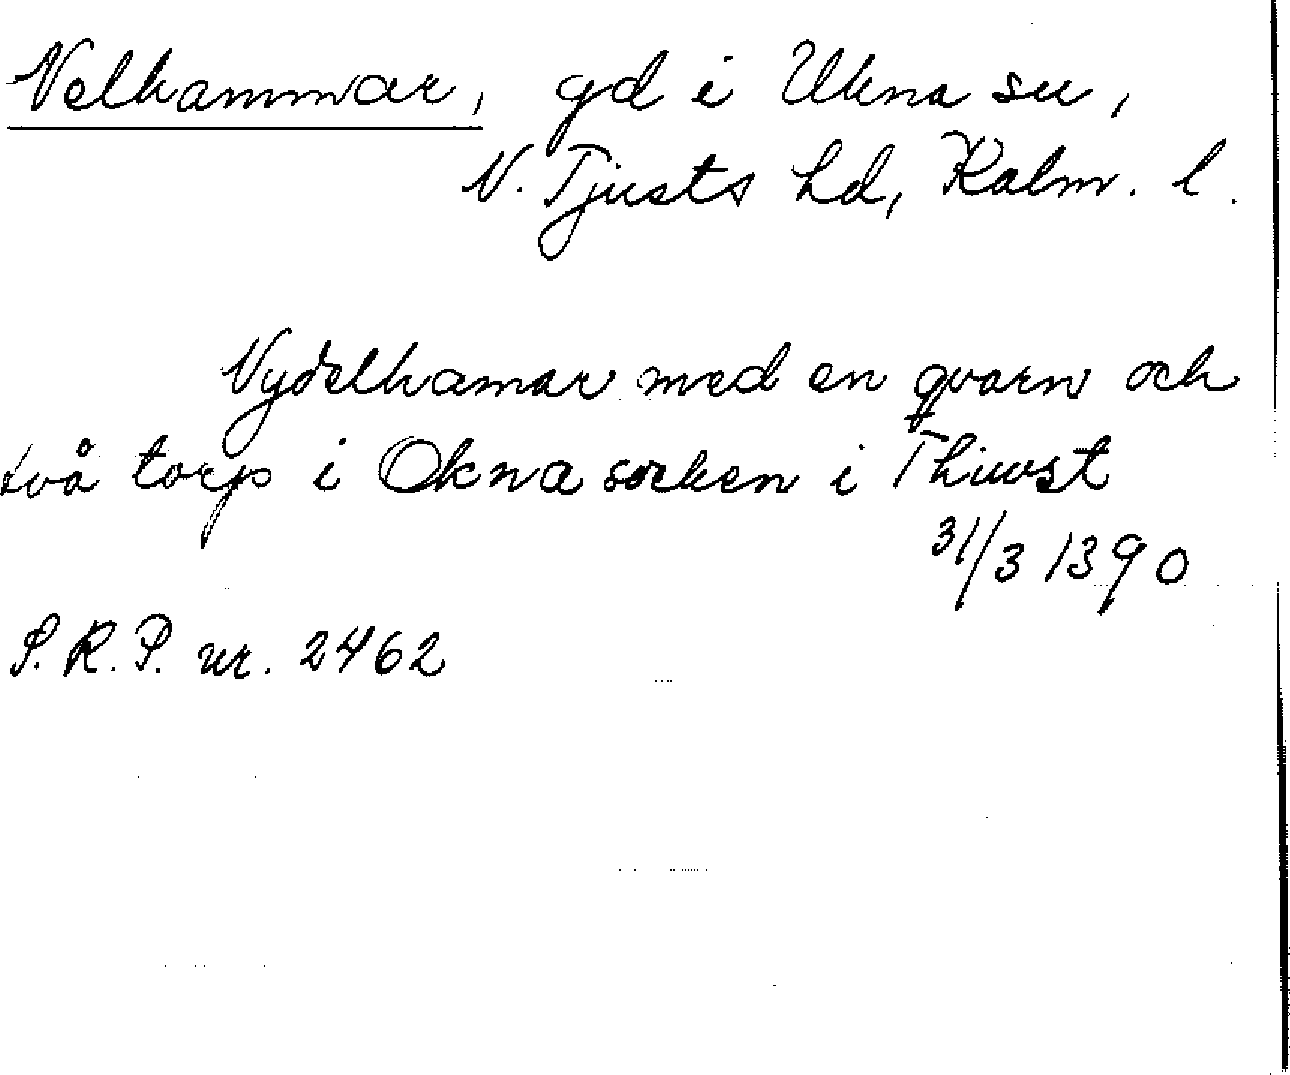 Velhammar, gd i Ukna sn,
N. Tjusts hd, Kalm. l.
Vydelhamar med en qvarn och
två torp i Okna socken i Thiwst
31/3 1390
S.R.P. nr. 2462